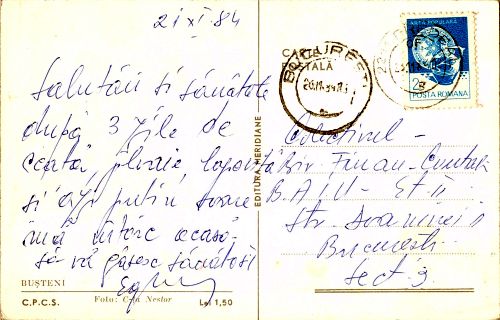 21 XI 84
Salutări și sănătate
după 3 zile de
ceață, ploaie, lapoviță
și azi puțin soare
mă întorc acasă
să vă găsesc sănătoși
BUȘTENI
C.P.C.S.
Foto: C-tin Nestor
Lei 1,50
EDITURA MERIDIANE
CARTE POȘTALĂ
BUCUREȘTI
ARTA POPULARA
2B
POSTA ROMANA
Colectivul -
Birv. Finan - Contab
B.A.III - Et II
Str. Doamnei 11
București
Sect. 3